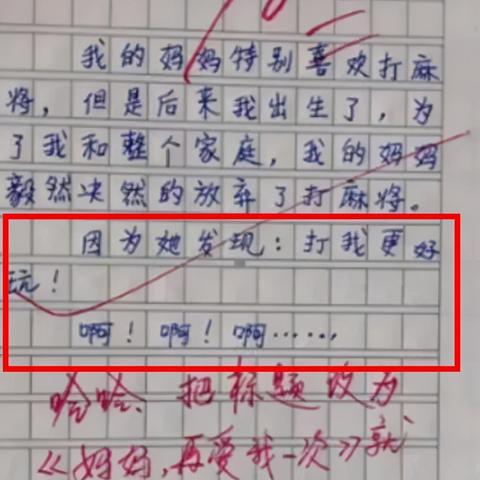 我的妈妈特别喜欢打麻
将，但是后来我出生了，为
了我和整个家庭，我的妈妈
毅然决然的放弃了打麻将。
因为她发现：打我更好
玩！
啊！啊！啊……
哈哈、把标题改为
《妈妈，再爱我一次》就